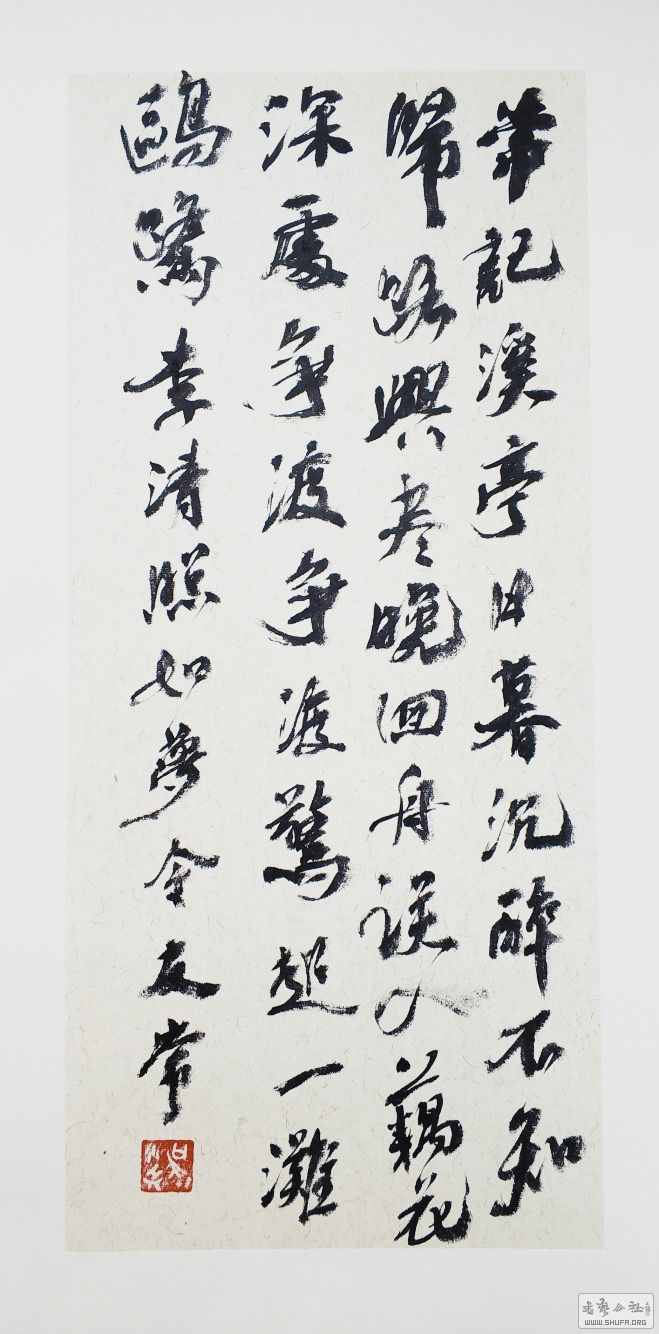 常記溪亭日暮沉醉不知
歸路興尽晚回舟誤入藕花
深處争渡争渡驚起一灘
鷗鷺李清照如夢令友常
書藝公社
WWW.SHUFA.ORG